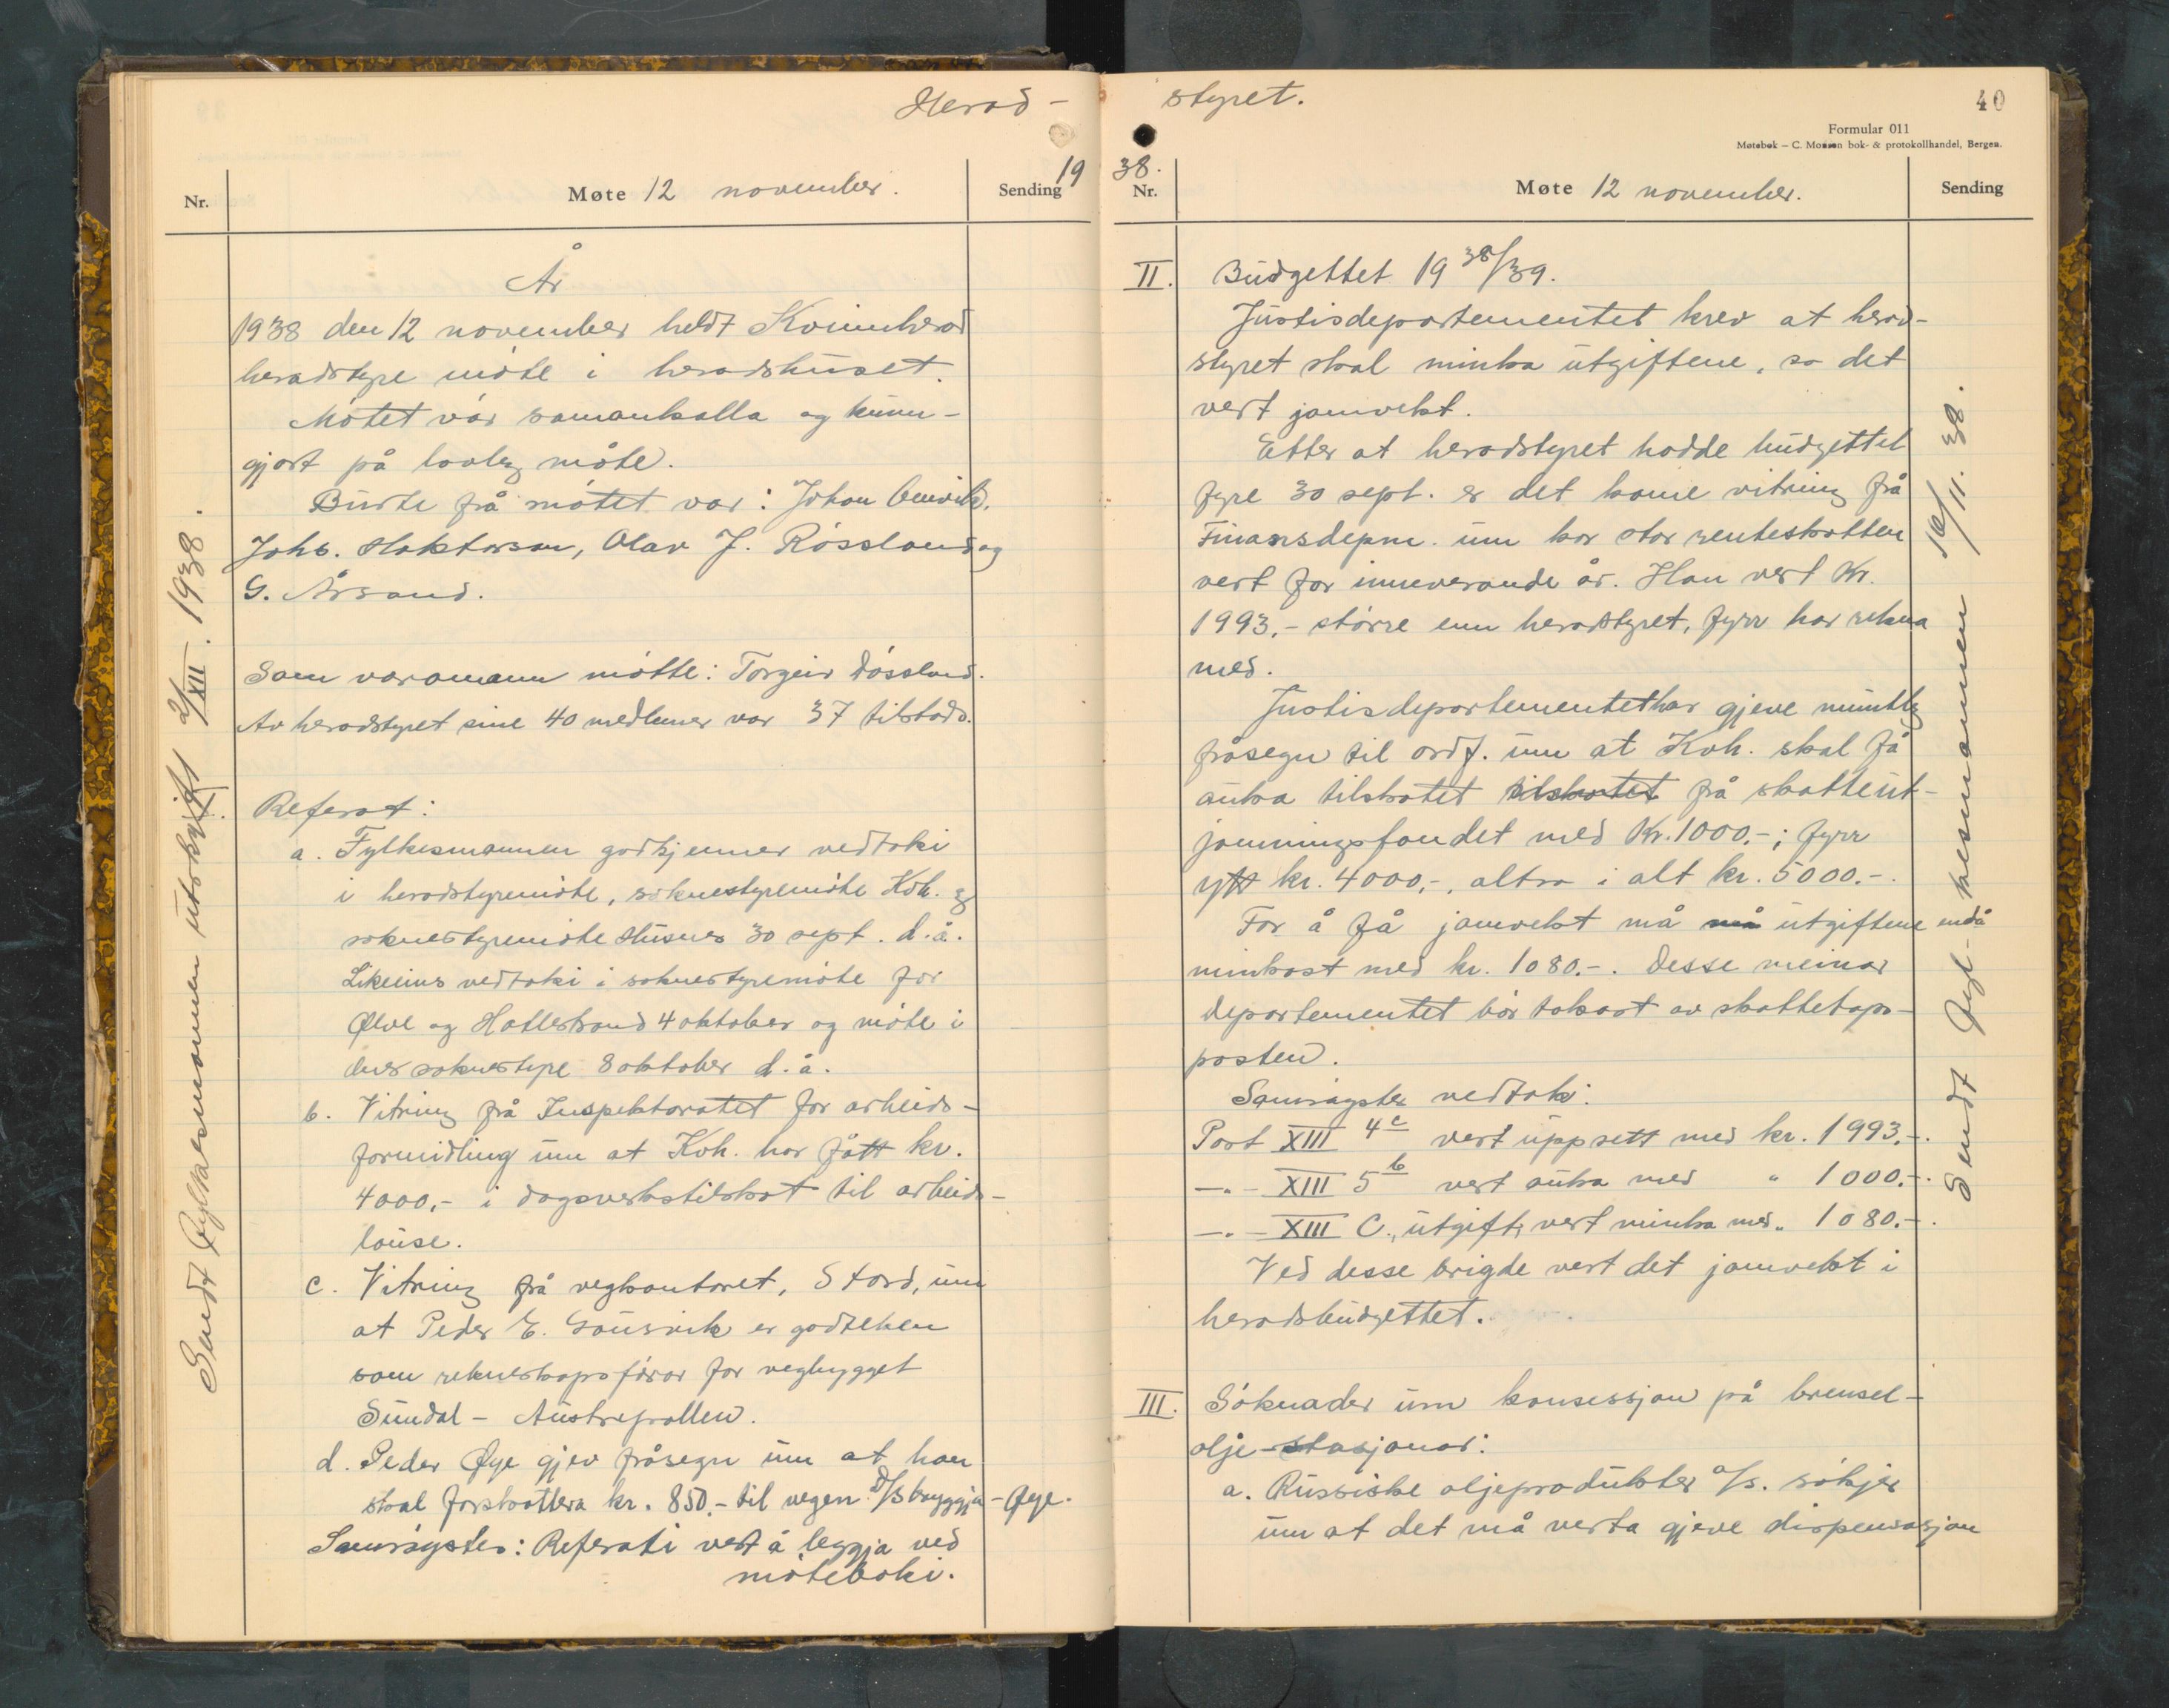 Herad-
Nr.
Møte 12 november.
Sending
19
År
1938 den 12 november heldt Kvinnherad
heradstyre møte i heradshuset.
Møtet var samankalla og kunn-
gjort på lovleg måte.
Burte frå møtet var: Johan
Johs. Haktorson, Olav J. Røssland og
G. Årsand.
Som varamann møtte: Torgeir Døssland.
Av heradstyret sine 40 medlemer var 37 tilstads.
Referat:
a. Fylkesmannen godkjenner vedtaki
i heradstyremøte, soknestyremøte Kvh. og
soknestyremøte Husnes 30 sept. d.å.
Likeeins vedtaki i soknestyremøte for
Ølve og Hatlestrand 4 oktober og møte i
soknestyre 8 oktober d.å.
b. Vitring frå Inspektoratet for arbeids-
formidling um at Kvh. har fått kr.
4000,- i dagsverkstilskot til arbeids-
lause.
c. Vitring frå vegkontoret, Stord, um
at Peder E. Gausvik er godteken
som rekneskapsførar for vegbygget
Sundal - Austrepollen.
d. Peder Øye gjev fråsegn um at han
skal forskottera kr. 850.- til vegen D/Sbryggja - Øye.
Samrøystes: Referati vert å leggja ved
møteboki.
Sendt Fylkesmannen utskrift 2/XII. 1938.
styret.
40
Formular 011
Møtebok - C. Monsen bok- & protokollhandel, Bergen.
38.
Nr.
Møte 12 november.
Sending
II. Budgettet 1938/39.
Justisdepartementet krev at herad-
styret skal minka utgiftene, so det
vert jamvekt.
Etter at heradstyret hadde budgettet
fyre 30 sept. er det kome vitring frå
Finansdepm. um kor stor renteskotten
vert for inneverande år. Han vert Kr.
1993,- større enn heradstyret, fyrr har rekna
med.
Justisdepartementet har gjeve muntleg
fråsegn til ordf. um at Kvh. skal få
auka tilskotet tilskotet frå skatteut-
jamningsfondet med Kr. 1000.-; fyrr
ytt kr. 4000,-, altso i alt kr. 5000.-.
For å få jamvekt må må utgiftene endå
minkast med kr. 1080.-. Desse meinar
departementet bør takast av skattetaps-
posten.
Samrøystes vedtak:
Post XIII 4c vert uppsett med kr. 1993.-.
-"- XIII 5b vert auka med " 1000.-.
-"- XIII C., utgift, vert minka med " 1080.-.
Ved desse brigde vert det jamvekt i
heradsbudgettet.
III. Søknader um konsesjon på brensel-
olje-stasjonar:
a. Russiske oljeprodukter a/s. søkjer
um at det må verta gjeve dispensasjon
Sendt fylkesmannen 16/11. 38.